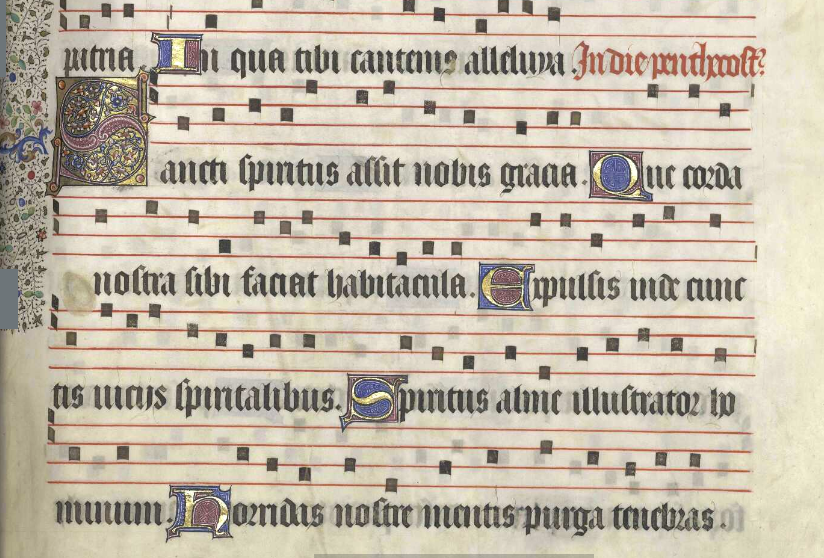 patria. In qua tibi cantemus alleluya. In die penthecost᷒
Sancti spiritus assit nobis gracia. Que corda
nostra sibi faciat habitacula. Expulsis inde cunc
tis uicijs spiritalibus. Spiritus alme illustrator ho
minum. Horridas nostre mentis purga tenebras.